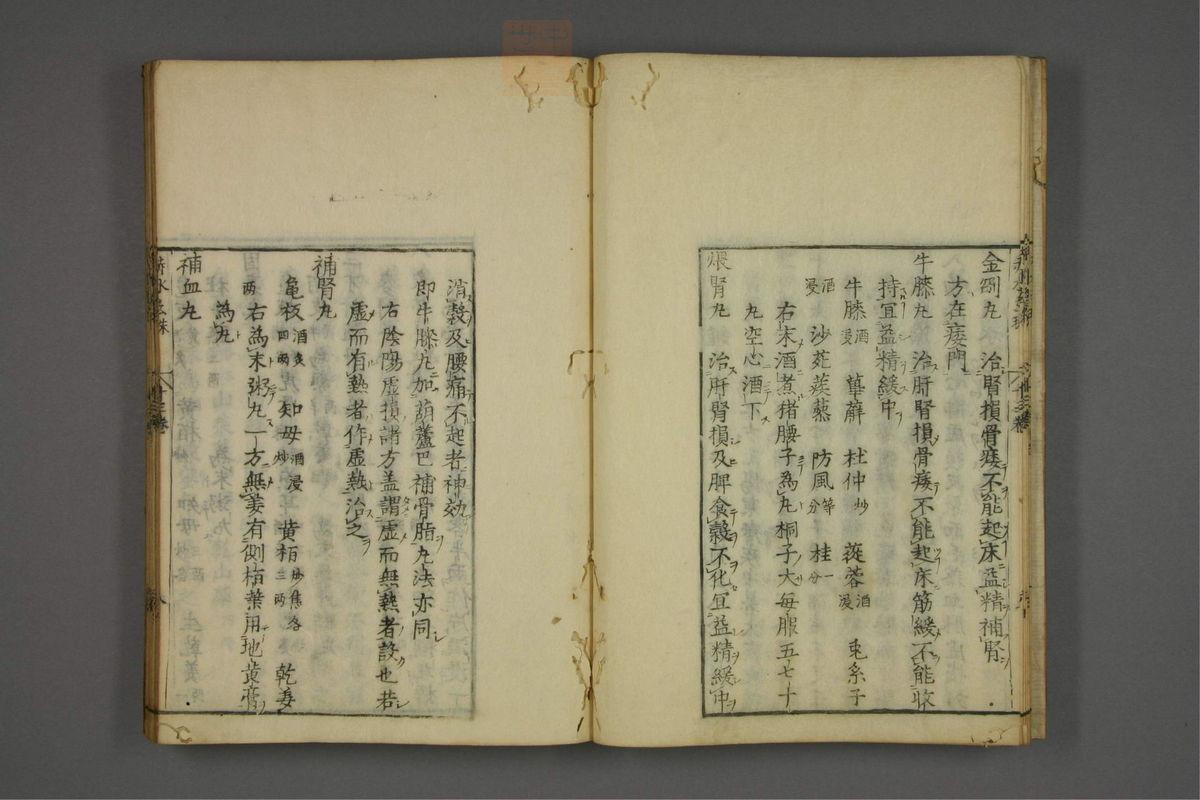 金剛丸 治腎損骨痿不能起床益精補腎
方在痿門
牛膝丸 治肝腎損骨痿不能起床筋緩不能收
持宜益精緩中
牛膝酒浸 萆薢 杜仲炒 蓯蓉酒浸 兎糸子
酒浸 沙苑蒺藜 防風等分 桂一分
右末酒煮猪腰子為丸桐子大每服五七十
丸空心酒下
煨腎丸 治肝腎損及脾食穀不化宜益精緩中
消穀及腰痛不起者神效
即牛膝丸加葫蘆巴補骨脂丸法亦同
右陰陽虛損諸方盖謂虛而無熱者設也若
虛而有熱者作虛熱治之
補腎丸
亀板酒炙四兩 知母酒浸炒 黄栢炒焦各三兩 乾姜
兩右為末粥丸一方無姜有側栢葉用地黄膏
為丸
補血丸